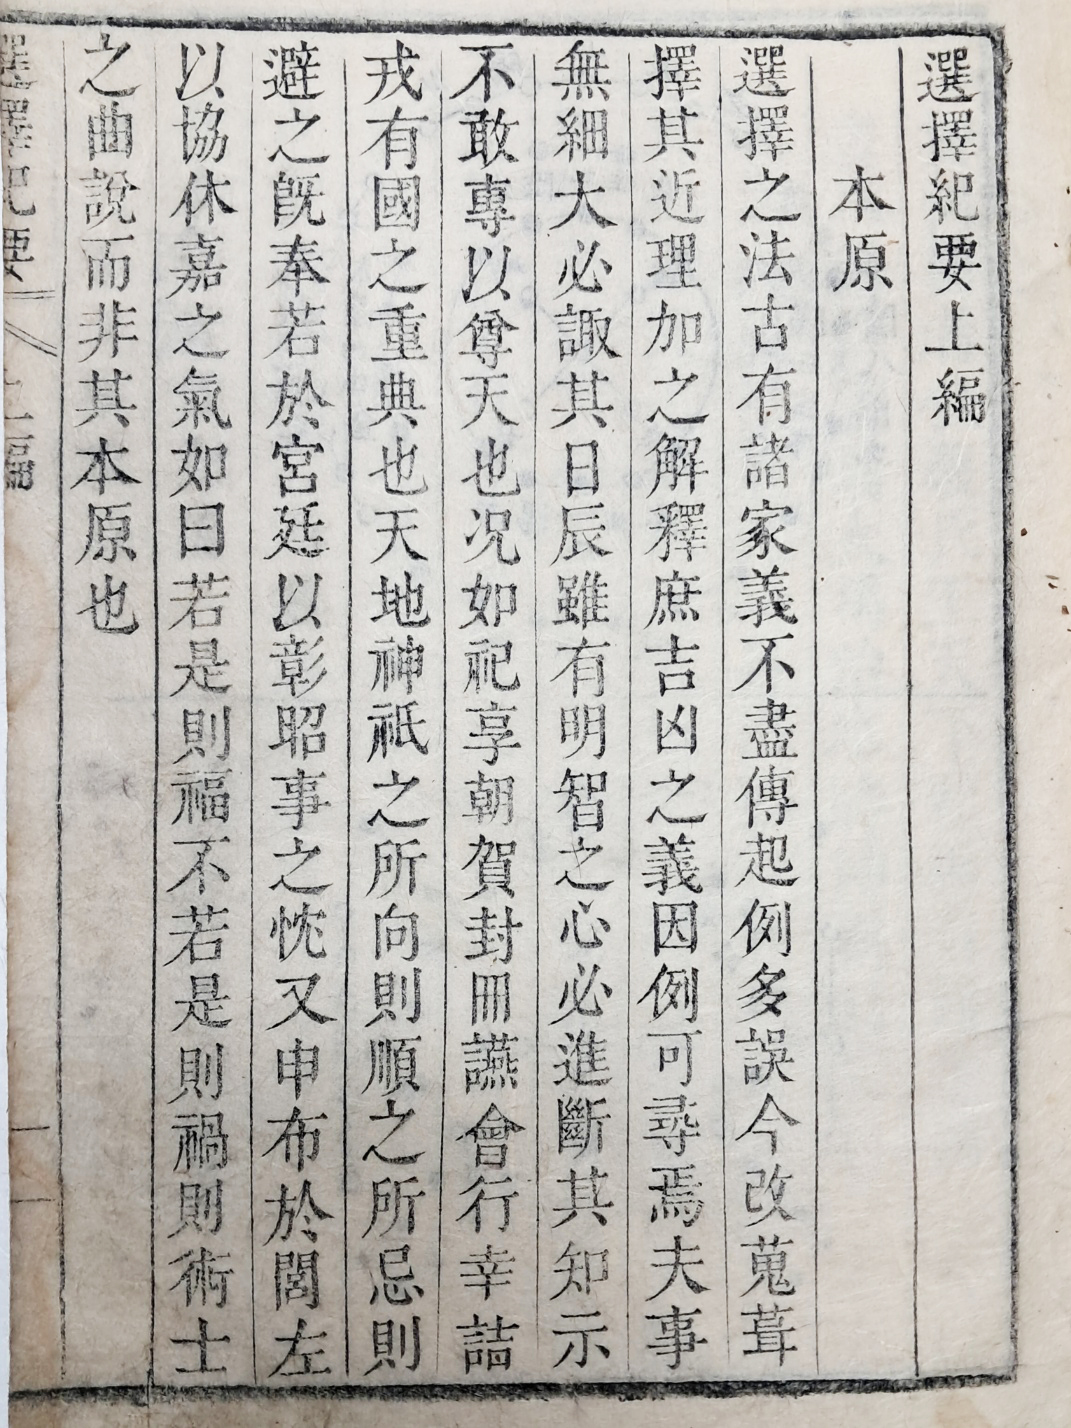 選擇紀要上編
本原
選擇之法古有諸家義不盡傳起例多誤今改蒐葺
擇其近理加之解釋庶吉凶之義因例可尋焉夫事
無細大必諏其日辰雖有明智之心必進斷其知示
不敢專以尊天也况如祀享朝賀封冊讌會行幸詰
戎有國之重典也天地神祇之所向則順之所忌則
避之旣奉若於宮廷以彰昭事之忱又申布於閭左
以協休嘉之氣如曰若是則福不若是則禍則術士
之曲說而非其本原也
選擇紀要 上編 一